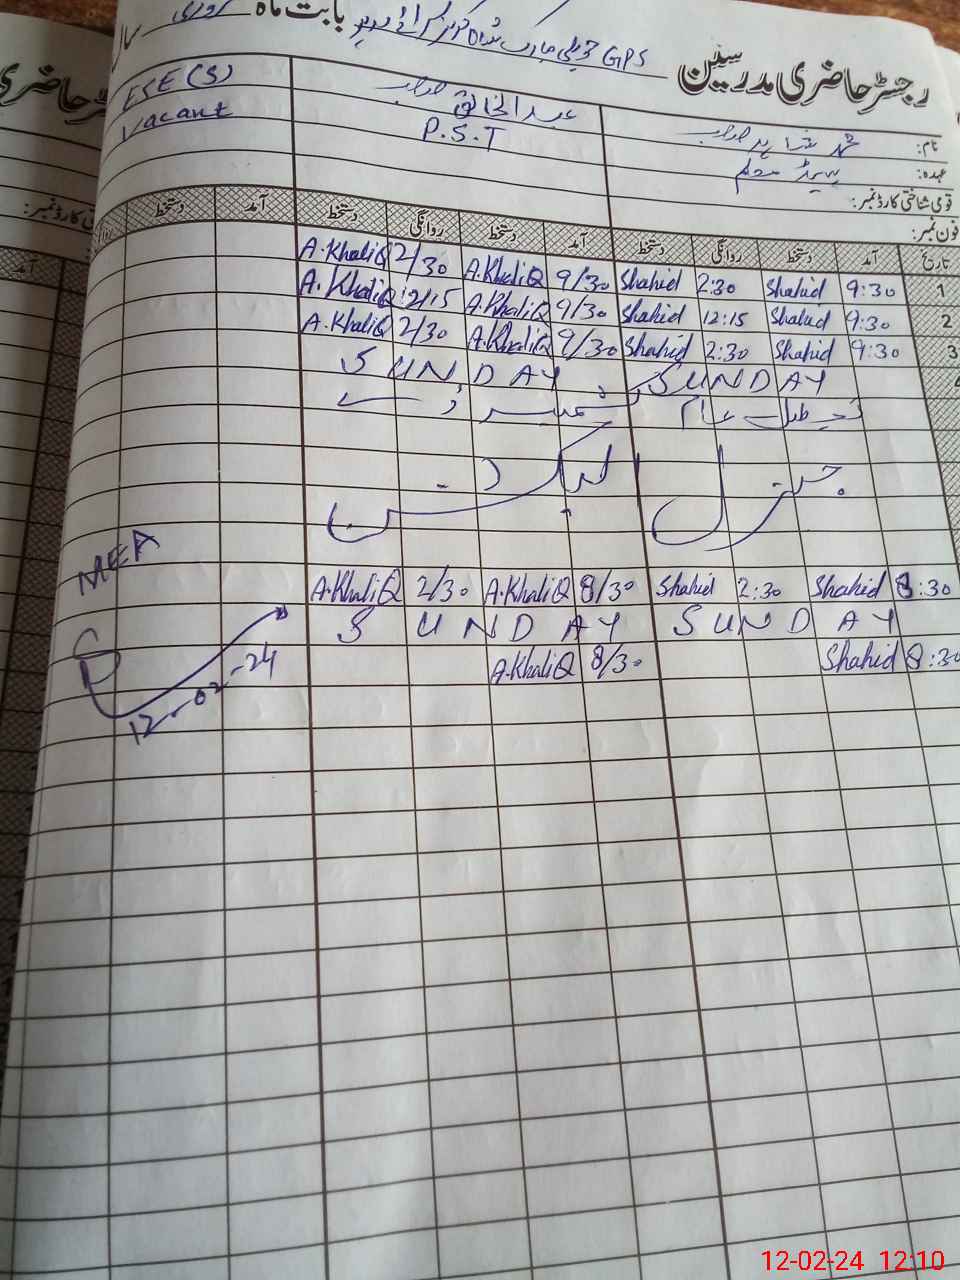 رجسٹر حاضری مدرسین GPS بابت ماہ سال
نام: محمد شاہد صاحب عبدالخالق صاحب ESE(S)
عہدہ: ہیڈ معلم P.S.T Vacant
قومی شناختی کارڈ نمبر:
فون نمبر:
تاریخ آمد دستخط روانگی دستخط آمد دستخط روانگی دستخط آمد دستخط
1 9:30 Shahid 2:30 Shahid 9/30 A.KhaliQ 2/30 A.KhaliQ
2 9:30 Shahid 12:15 Shahid 9/30 A.KhaliQ 12/15 A.KhaliQ
3 9:30 Shahid 2:30 Shahid 9/30 A.KhaliQ 2/30 A.KhaliQ
4 SUNDAY SUNDAY
تعطیل عام
جنرل الیکشن
8:30 Shahid 2:30 Shahid 8/30 A.KhaliQ 2/30 A.KhaliQ
MEA
SUNDAY SUNDAY
8:30 Shahid 8/30 A.KhaliQ
12-02-24
12-02-24 12:10